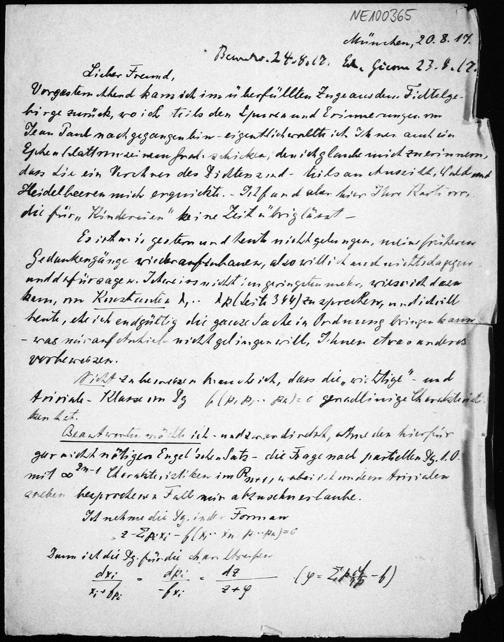 NE100365
München, 20.8.17.
24.8.17. 23.8.17.
Lieber Freund,
Vorgestern Abend kam ich im überfüllten Zuge aus dem Fichtelge-
birge zurück, wo ich teils den Spuren und Erinnerungen von
Jean Paul nachgegangen bin - eigentlich wollte ich Ihnen auch ein
Epheublatt von seinem Grab schicken, denn ich glaube mich zu erinnern,
dass Sie ein Verehrer des Dichters sind - teils an Aussicht, Wald und
Heidelbeeren mich erquickte. - Ich fand aber hier Ihre Karte vor,
die für „Kindereien" keine Zeit übrig lässt -
Es ist mir gestern und heute nicht gelungen, meine früheren
Gedankengänge wieder aufzubauen, also will ich auch nichts dagegen
und dafür sagen. Ich weiss nicht im geringsten mehr, wieso ich dazu
kam, von Konstanten λ₁, ·· λ (Seite 344) zu sprechen, und ich will
heute, ehe ich endgültig die ganze Sache in Ordnung bringen kann
- was mir auf Anhieb nicht gelingen will, Ihnen etwas anderes
vorbeweisen.
Nicht zu beweisen brauche ich, dass die „wichtige" - und
triviale - Klasse von Dg f(p₁, p₂ ·· pₙ) = 0 geradlinige Charakteristi-
ken hat.
Beantworten möchte ich - und zwar direkt, ohne den hierfür
gar nicht nötigen Engel'schen Satz - die Frage nach partiellen Dg. 1.O.
mit ∞²ⁿ⁻¹ Charakteristiken im Rₙ₊₁, wobei ich den trivialen
soeben besprochenen Fall mir abzusehen erlaube.
Ich nehme die Dg. in der Form an
z - Σpᵢxᵢ - f(x₁ ·· xₙ p₁ ·· pₙ) = 0
Dann ist die Dg. für die char. Streifen
dxᵢ / (xᵢ + fpᵢ) = dpᵢ / (-fxᵢ) = dz / (z + φ) (φ = Σ pᵢ fpᵢ - f)